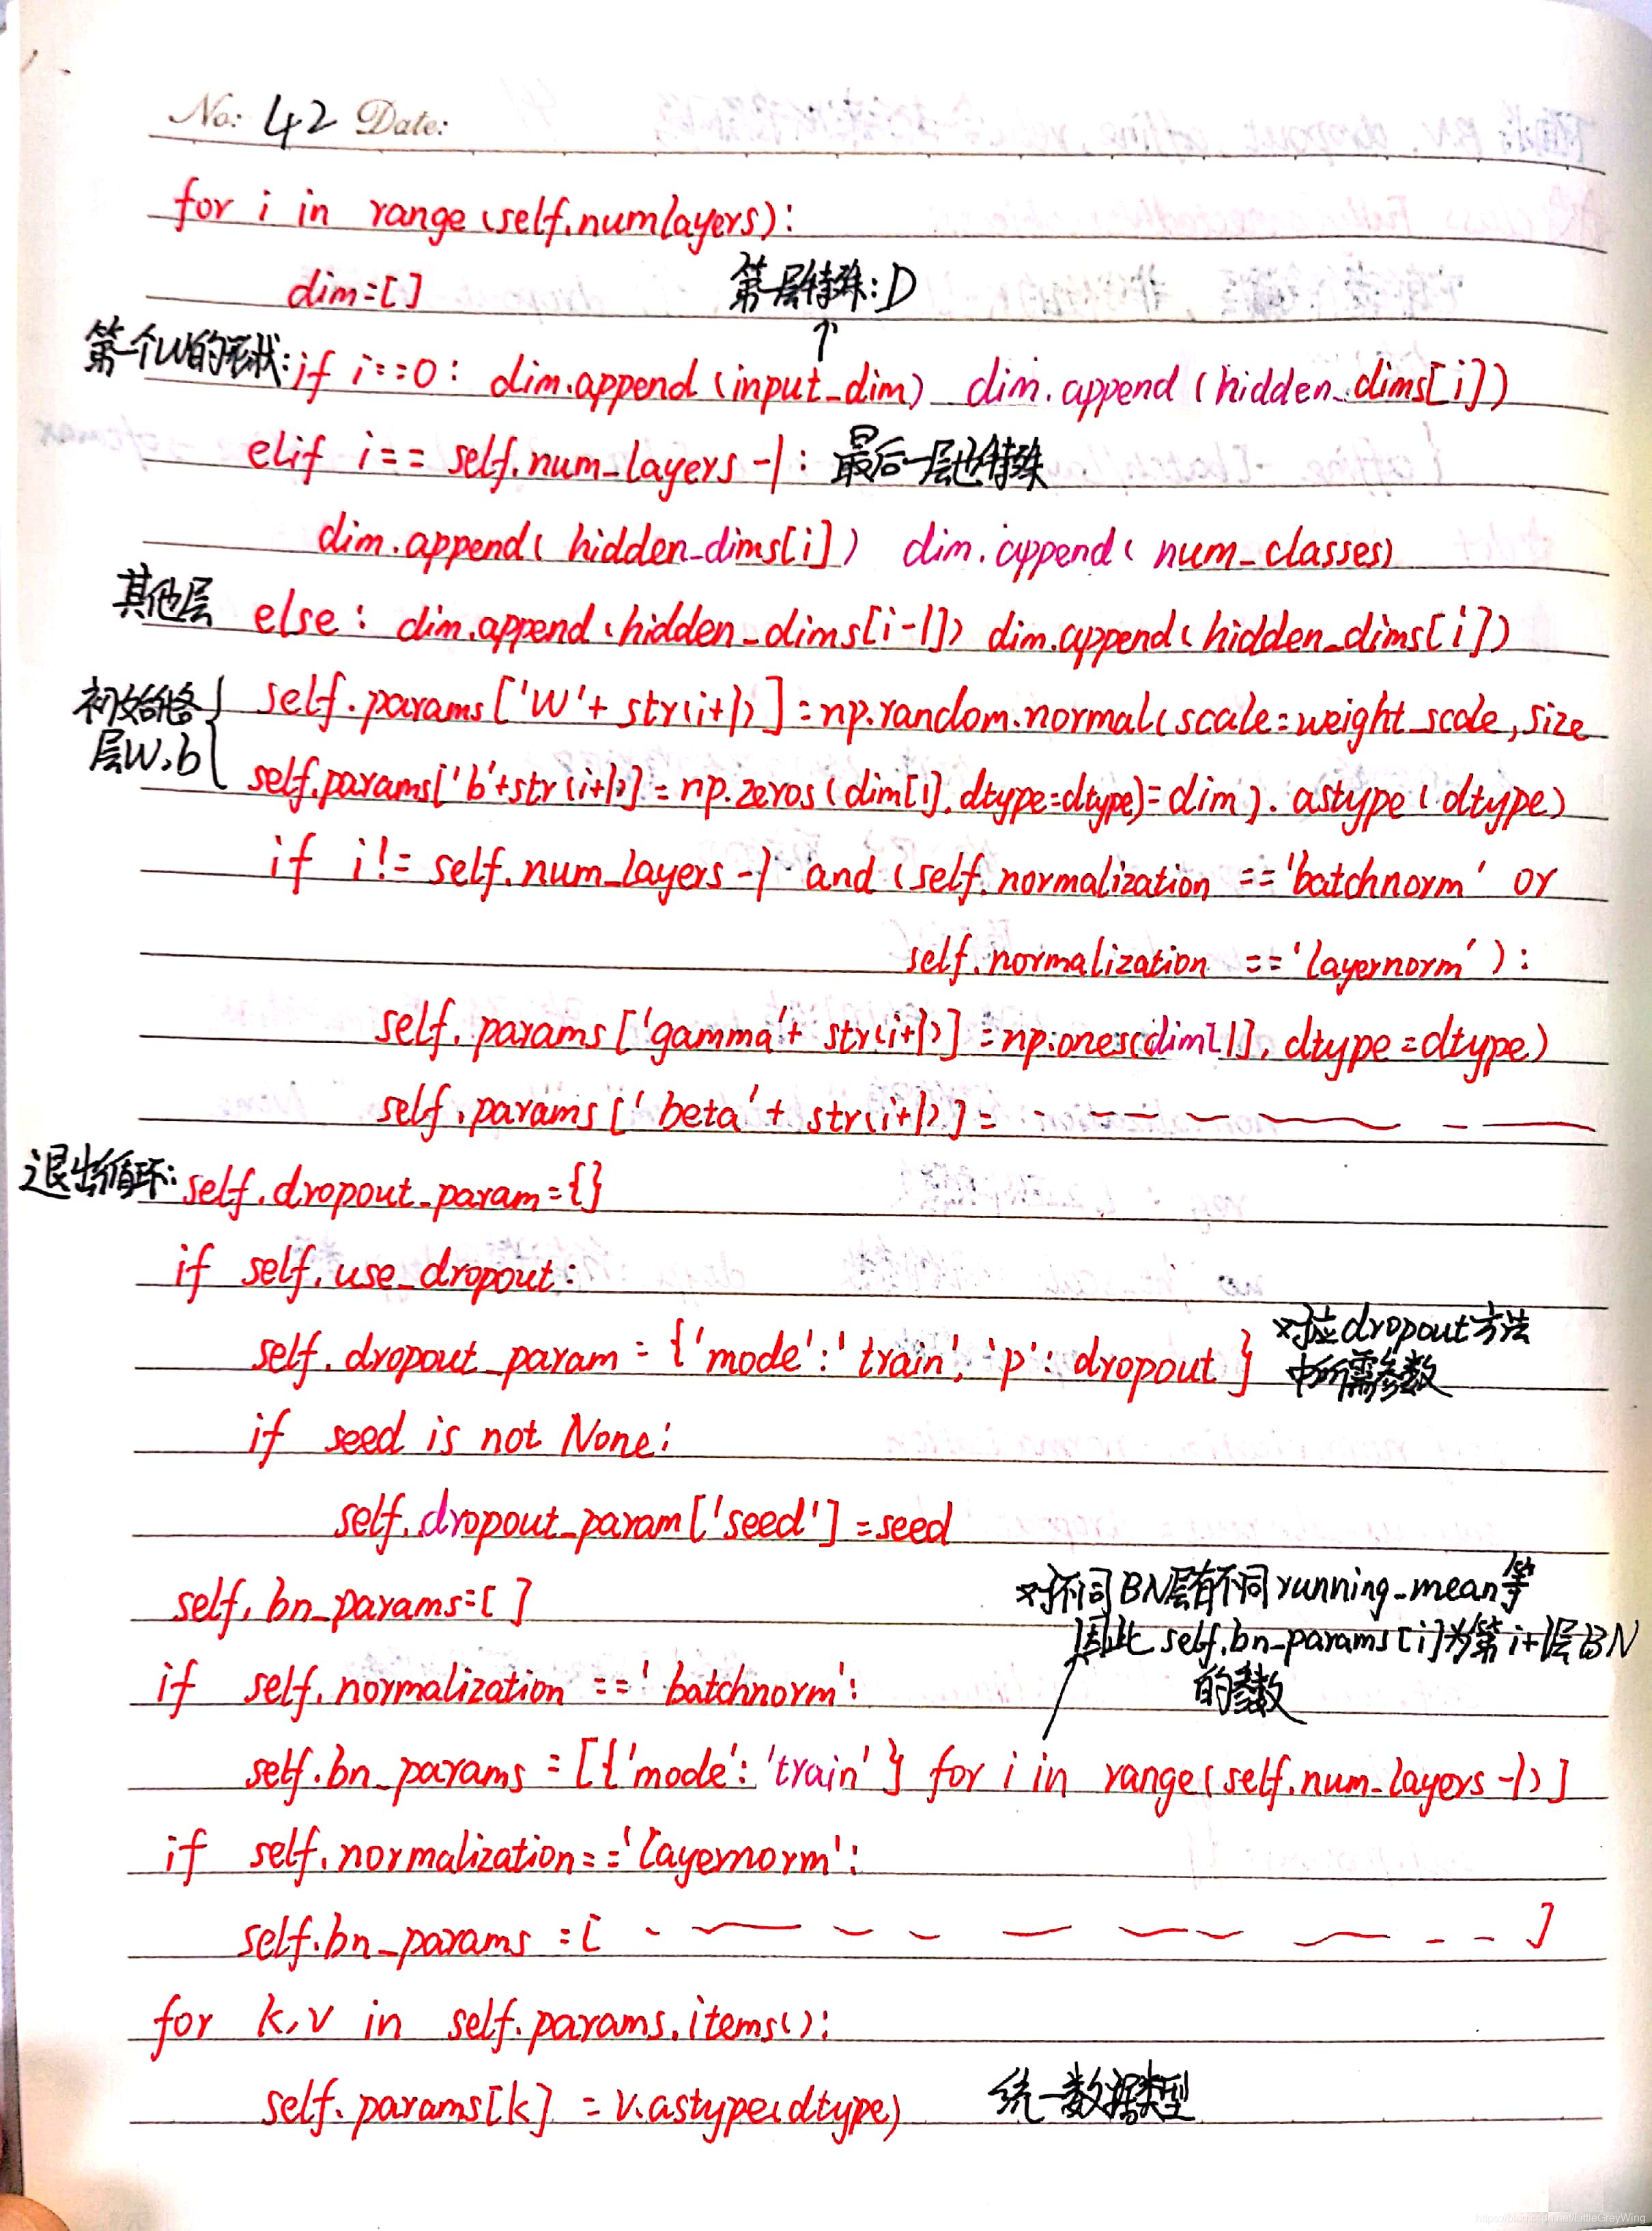 No: 42 Date:
for i in range(self.numlayers):
dim=[]
第一层特殊:D
↑
第一个W的形状: if i==0: dim.append(input_dim) dim.append(hidden_dims[i])
elif i== self.num_layers-1: 最后一层也特殊
dim.append(hidden_dims[i]) dim.append(num_classes)
其他层 else: dim.append(hidden_dims[i-1]) dim.append(hidden_dims[i])
初始化各层W,b { self.params['W'+ str(i+1)]=np.random.normal(scale=weight_scale,size
self.params['b'+str(i+1)]=np.zeros(dim[i],dtype=dtype)=dim).astype(dtype)
if i!= self.num_layers-1 and (self.normalization =='batchnorm' or
self.normalization =='layernorm'):
self.params['gamma'+ str(i+1)]=np.ones(dim[1],dtype=dtype)
self.params['beta'+ str(i+1)]=
退出循环: self.dropout_param={}
if self.use_dropout:
self.dropout_param={'mode':'train','p':dropout} 对应dropout方法
中所需参数
if seed is not None:
self.dropout_param['seed']=seed
self.bn_params=[]
对不同BN层有不同running_mean等
因此self.bn_params[i]为第i+1层BN
的参数
if self.normalization =='batchnorm':
self.bn_params=[{'mode':'train'} for i in range(self.num_layers-1)]
if self.normalization=='layernorm':
self.bn_params=[ ]
for k,v in self.params.items():
self.params[k] =v.astype(dtype) 统一数据类型